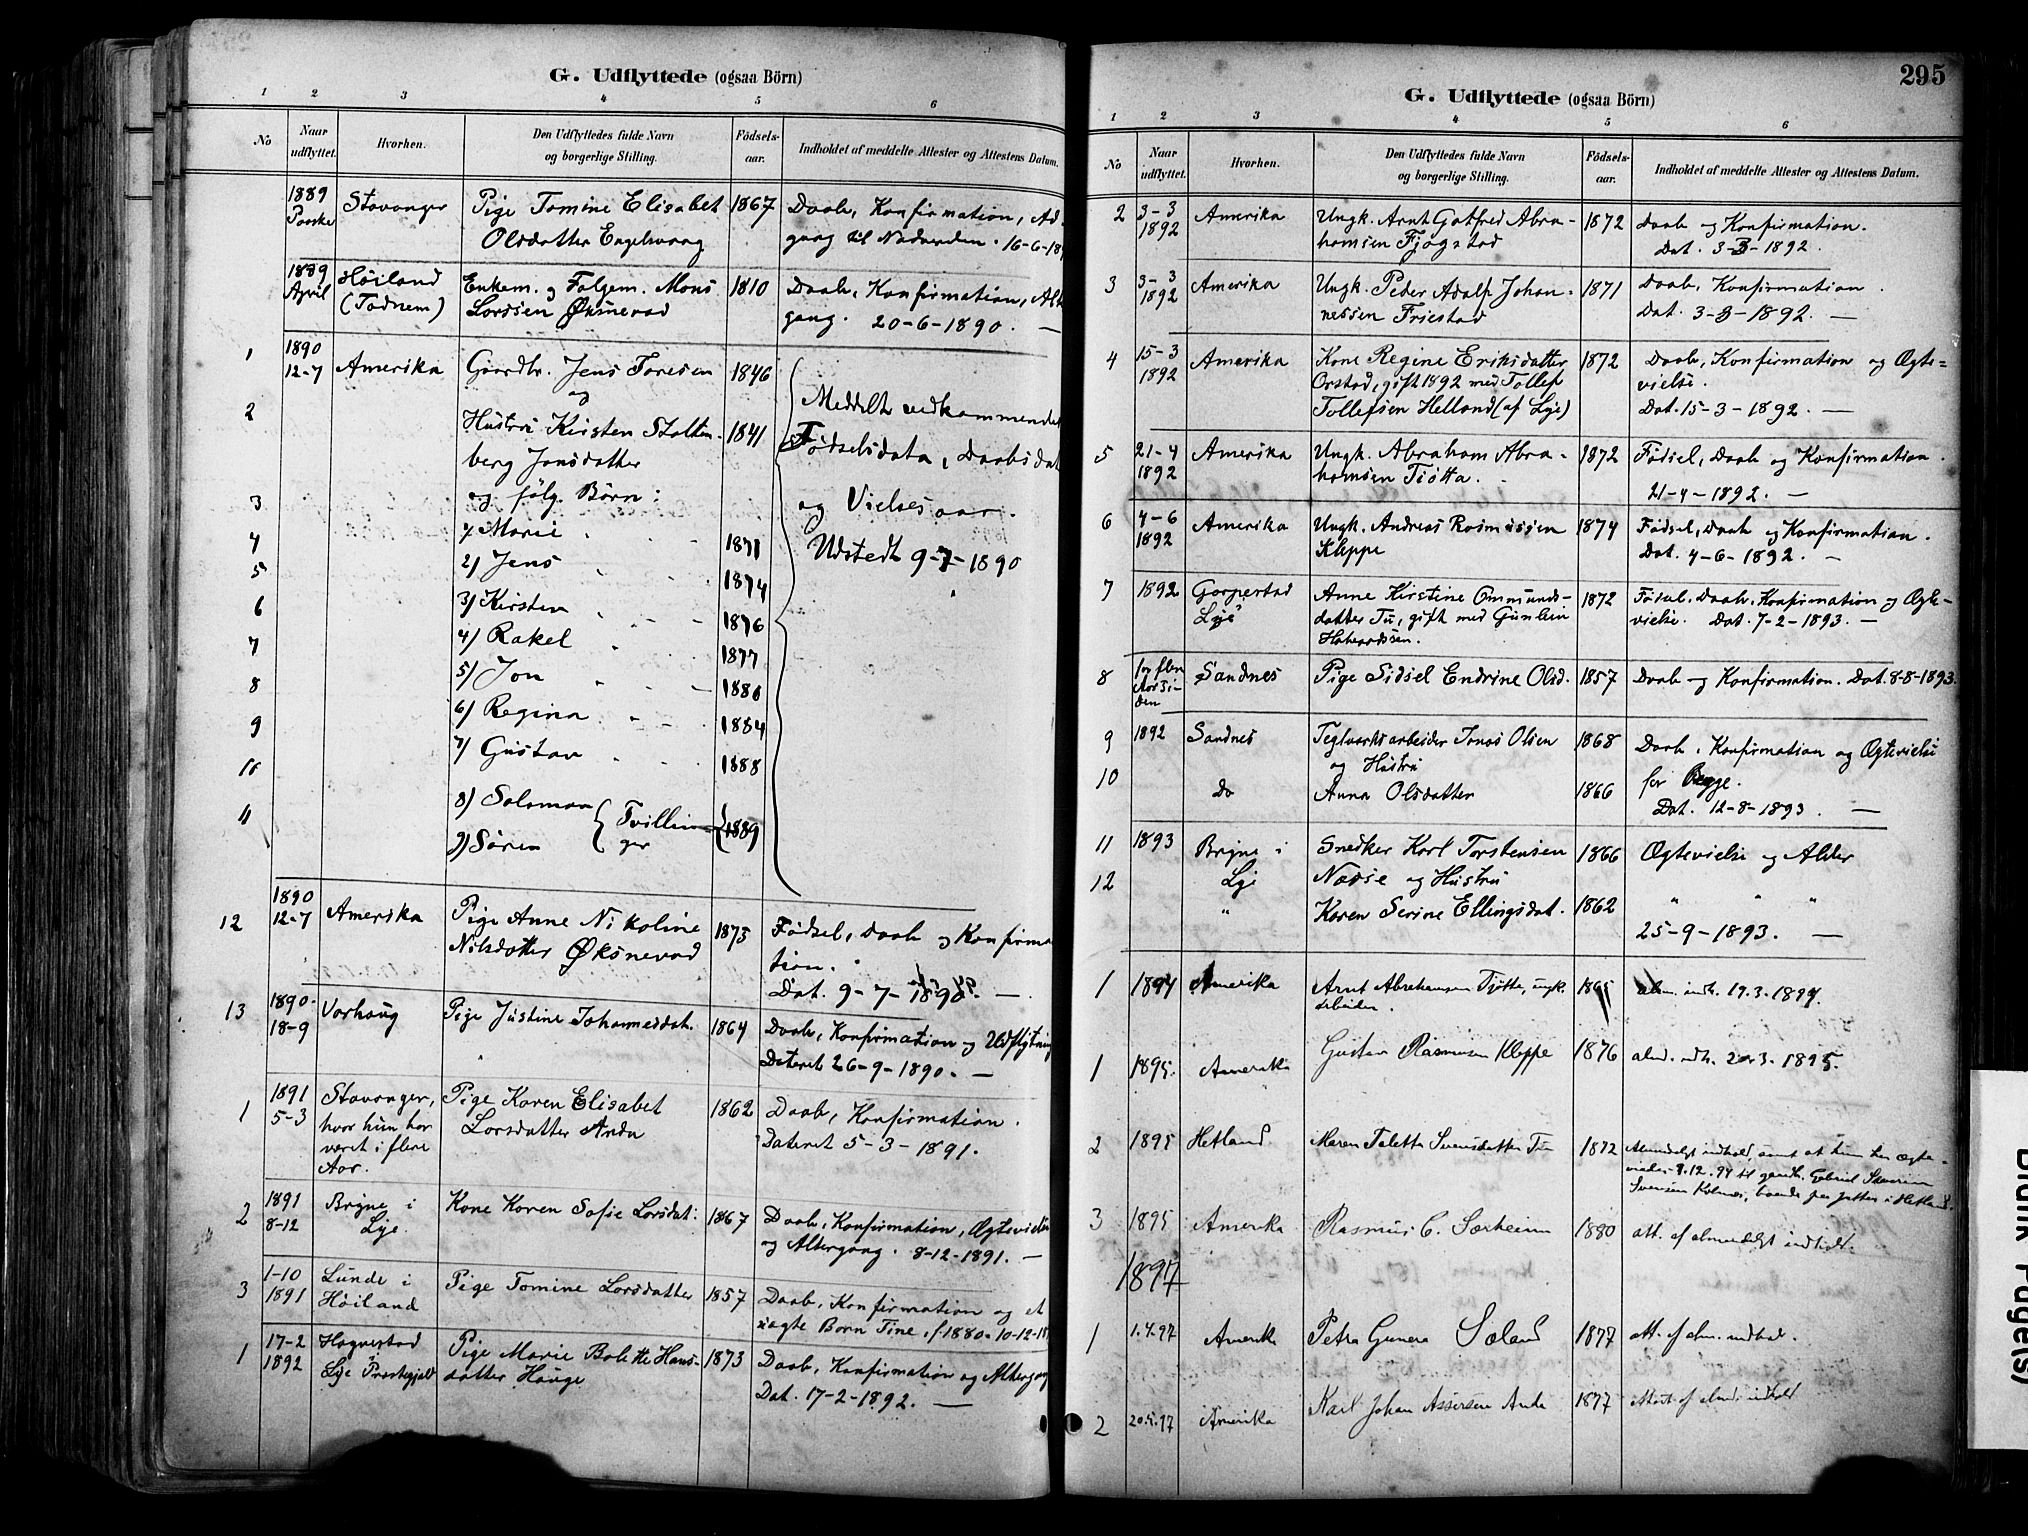 G. Udflyttede (ogsaa Börn)
1 2 3 4 5 6
No
Naar udflyttet.
Hvorhen.
Den Udflyttedes fulde Navn
og borgerlige Stilling.
Fødsels-
aar.
Indholdet af meddelte Attester og Attestens Datum.
1889 Stavanger Pige Tomine Elisabet 1867 Daab, Konfirmation, Ad-
Paaske Olsdatter Engelsvaag gang til Nadverden. 16-6-18
1889 Høiland Enkem. og Folgem. Mons 1810 Daab, Konfirmation, Alt
April (Tadnem) Larssen Øksnevad gang. 20-6-1890. —
1 1890 Amerika Gaardbr. Jens Toresen 1846
12-7 og Meddelt vedkommende
2 Hustru Kirsten Stolten- 1841 Fødselsdata, Daabsdat
berg Jonsdatter
og følg. Børn: og Vielsesaar.
3 1) Marie 1871 Udstedt 9-7-1890
4 2) Jens 1874
5 3) Kirsten 1876
6 4) Rakel 1877
7 5) Jon 1880
8 6) Regina 1884
9 7) Gustav 1888
10 8) Salomon Tvillin- 1889
11 9) Søren ger
12 1890 Amerika Pige Anne Nikoline 1875 Fødsel, Daab og Konfirma
12-7 Nilsdatter Øksnevad tion.
Dat. 9-7-1890. —
13 1890- Varhaug Pige Justine Johannesdat. 1864 Daab, Konfirmation og Udflytning
18-9 Dateret 26-9-1890. —
1 1891 Stavanger, Pige Karen Elisabet 1862 Daab, Konfirmation.
5-3 hvor hun har Larsdatter Anda Dateret 5-3-1891.
været i flere
Aar.
2 1891 Bryne i Kone Karen Sofie Larsdat. 1867 Daab, Konfirmation, Ægtevielse
8-12 Lye. og Altergang. 8-12-1891. —
3 1-10 Lunde i Pige Tomine Larsdatter 1857 Daab, Konfirmation og et
1891 Høiland uægte Barn Tine, f. 1880. 10-12-18
1 17-2 Hognestad Pige Marie Bolette Hans- 1873 Daab, Konfirmation og Altergang
1892 i Lye Præstegjeld datter Hauge Dat. 17-2-1892. —
295
G. Udflyttede (ogsaa Börn)
1 2 3 4 5 6
No
Naar udflyttet.
Hvorhen.
Den Udflyttedes fulde Navn
og borgerlige Stilling.
Fødsels-
aar.
Indholdet af meddelte Attester og Attestens Datum.
2 3-3 Amerika Ungk. Arnt Gotfred Abra- 1872 Daab og Konfirmation.
1892 hamsen Fjogstad Dat. 3-3-1892.
3 3-3 Amerika Ungk. Peder Adolf Johan- 1871 Daab, Konfirmation.
1892 nessen Friestad Dat. 3-3-1892. —
4 15-3 Amerika Kone Regine Eriksdatter 1872 Daab, Konfirmation og Ægte-
1892 Orstad, gift 1892 med Tollef vielse.
Tollefsen Helland (af Lye) Dat. 15-3-1892. —
5 21-4 Amerika Ungk. Abraham Abra- 1872 Fødsel, Daab og Konfirmation.
1892 hamsen Tjøtta. 21-4-1892. —
6 4-6 Amerika Ungk. Andreas Rasmussen 1874 Fødsel, Daab og Konfirmation.
1892 Kleppe Dat. 4-6-1892. —
7 1892 Garpestad Anne Kirstine Ommunds- 1872 Fødsel, Daab, Konfirmation og Ægte-
Lye datter Tu, gift med Gunlein vielse. Dat. 7-2-1893. —
8 for flere Sandnes Pige Sidsel Endrine Olsd. 1857 Daab og Konfirmation. Dat. 8-8-1893.
Aar si-
den
9 1892 Sandnes Teglværksarbeider Jonas Olsen 1868 Daab, Konfirmation og Ægtevielse
og Hustru for Begge.
10 Do Anna Olsdatter 1866 Dat. 12-8-1893. —
11 1893 Bryne i Snedker Karl Torstensen 1866 Ægtevielse og Alder
12 Lye Nærse og Hustru
" Karen Serine Ellingsdat. 1862 " " "
25-9-1893. —
1 1894 Amerika Arnt Abrahamsen Tjøtte, ungk. 1865 alm. indh. 19.3.1894.
arbeider.
1 1895. Amerika Gustav Rasmussen Kleppe 1876 almd. indh. 3. 1895.
2 1895 Hetland Maren Taletta Svensdatter Tu 1872 Almindeligt indhold samt at hun har ægte-
viedes 8.12.94 til gaardb. Gabriel Severin
Svensen Kolnes, boende paa Jåtten i Hetland.
3 1895 Amerika Rasmus C. Særheim 1880 att. af almindeligt indhold.
1897
1 1.4.97 Amerika Petra Gunera Sæland 1877 att. af alm. indhold.
2 20.4.97 Amerika Karl Johan Assersen Anda 1877 Attest af almd. indhold